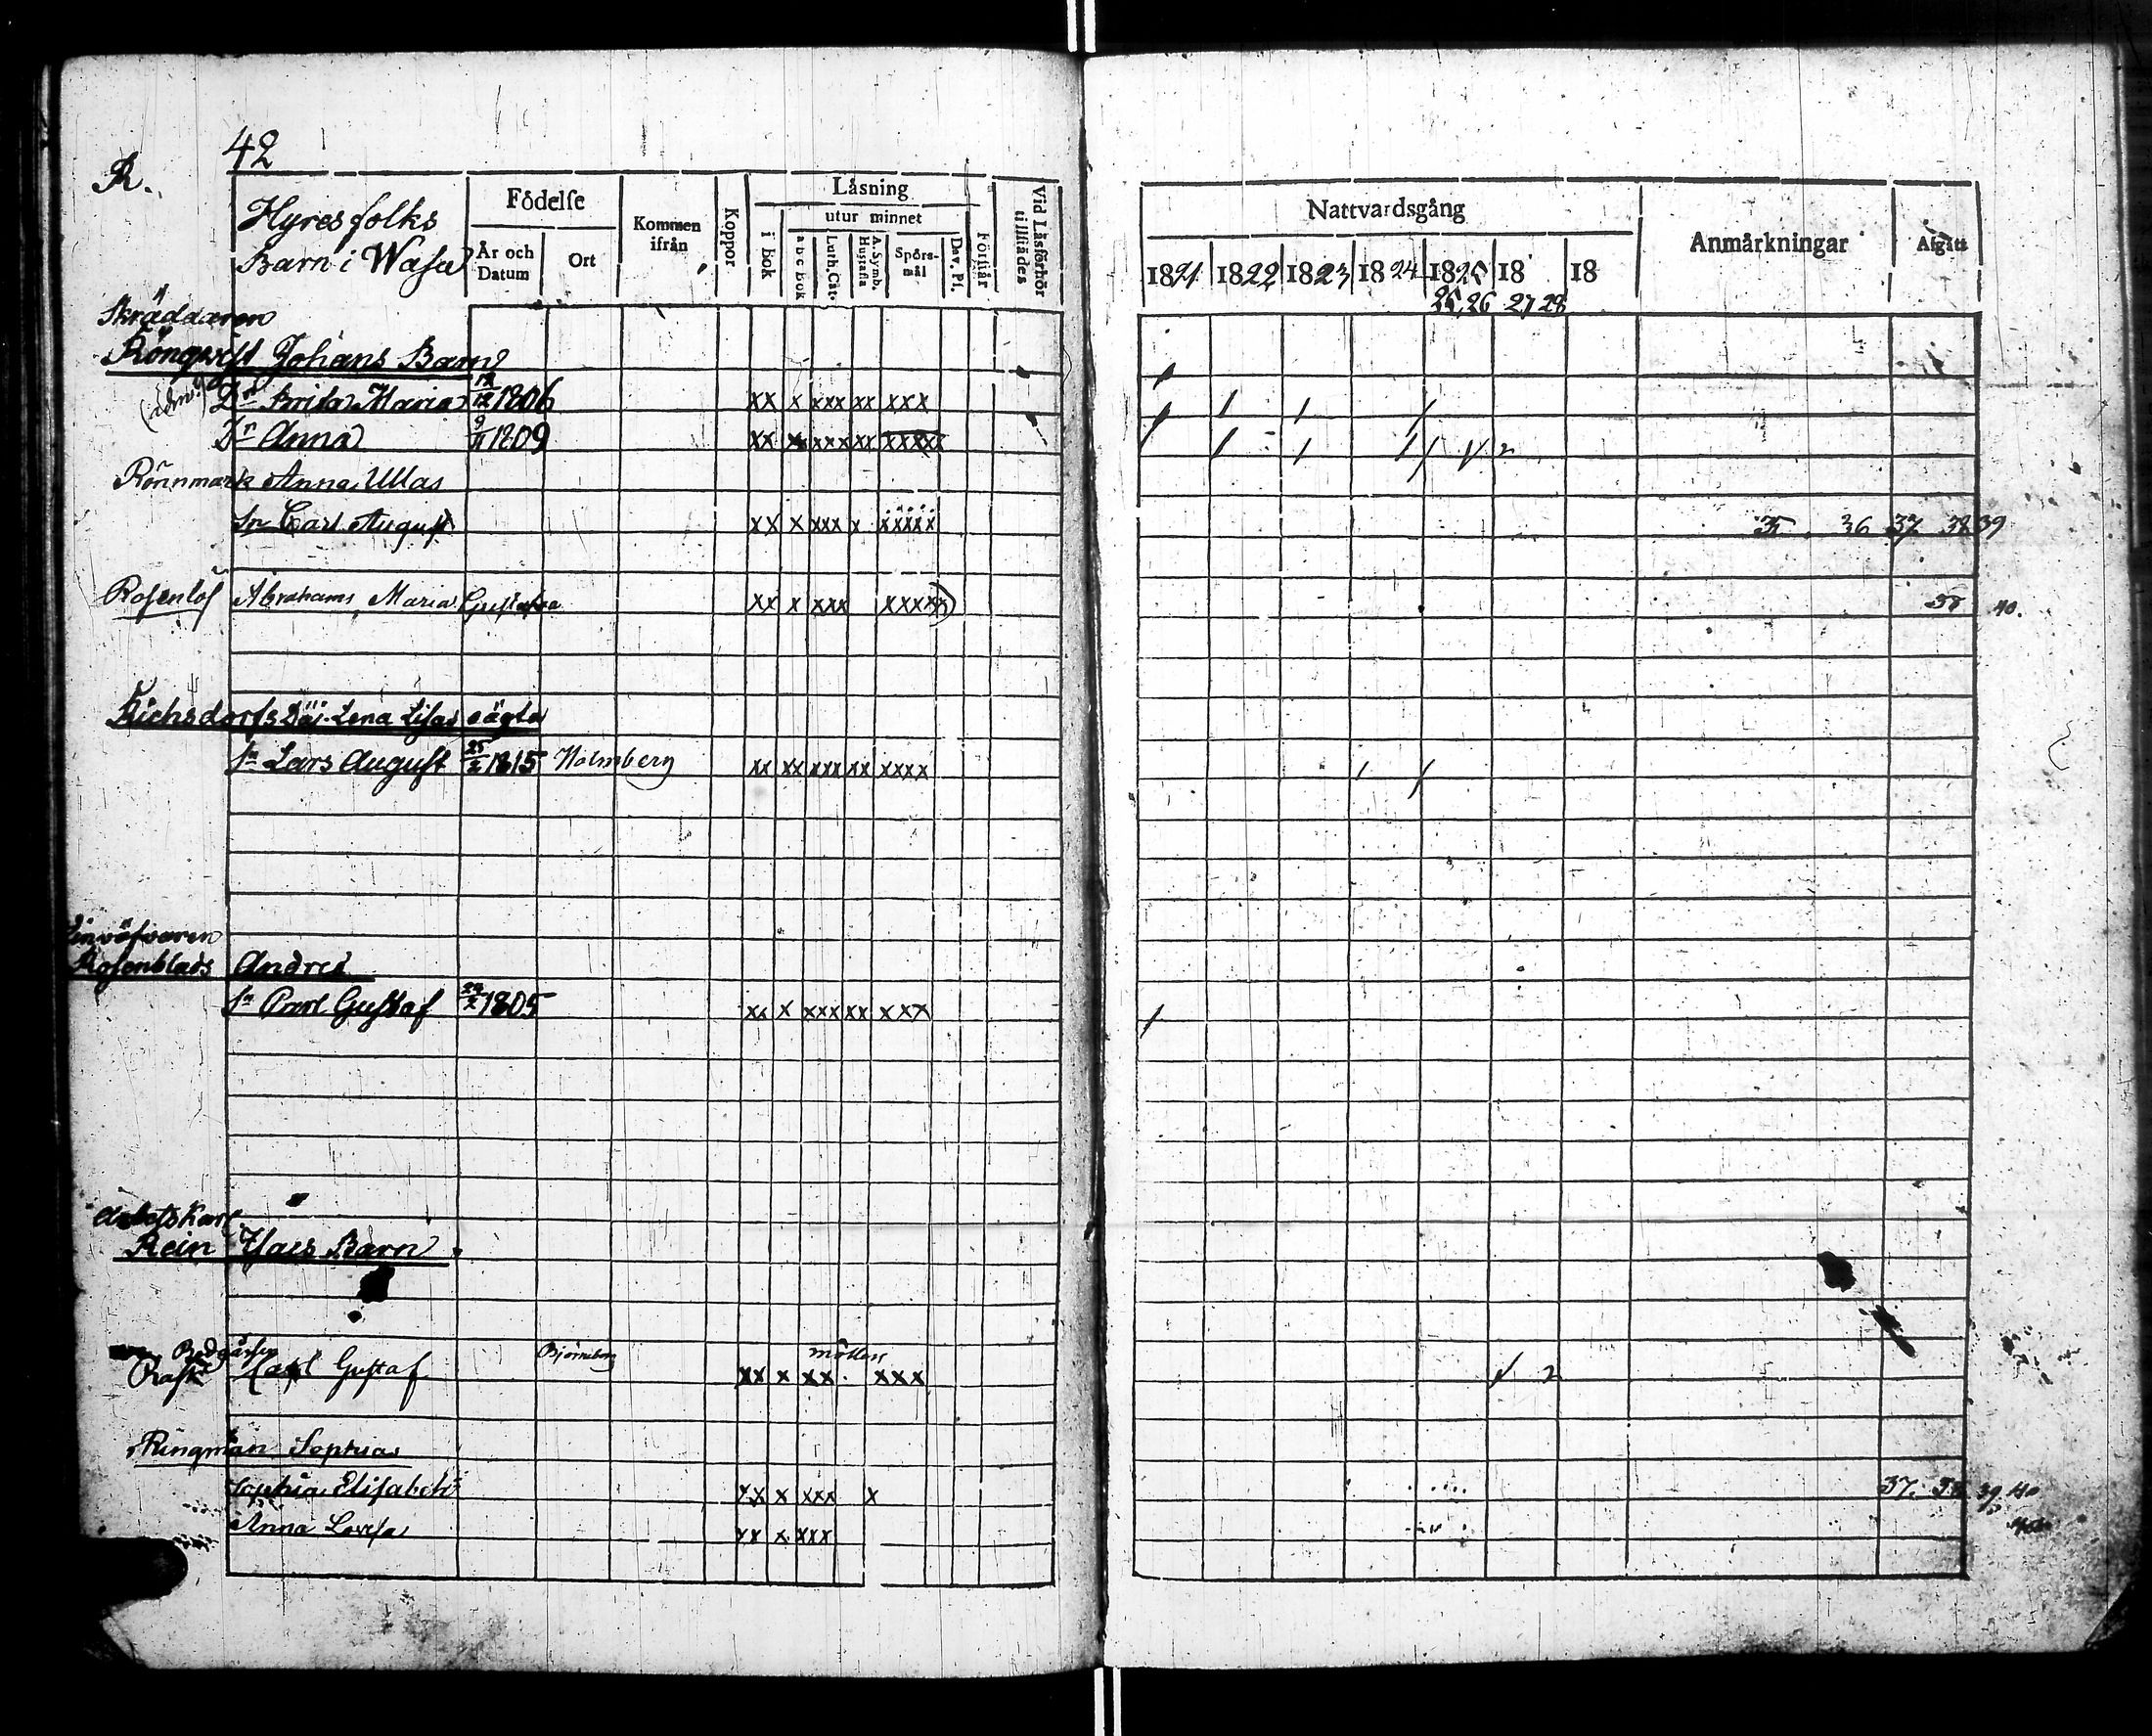 42
R.
Hyresfolks
Barn i Wasa
Födelse
År och Datum
Ort
Kommen ifrån
Koppor
Låsning
i bok
utur minnet
a b c bok
Luth. Cat.
A. Symb. Hustafla
Spörsmål
Dav. Ps.
Förstår
Vid Läsförhör tillstädes
Nattvardsgång
1821 1822 1823 1824 1825 18 18
25, 26 27 28
Anmärkningar
Afgått
Skräddaren
Röngwist Johans Barn
Dr Brita Maria 12/12 1806 xx x xxx xx xxx
Dr Anna 9/11 1809 xx xx xxxx xx xxxxx
Rönnmark Anna Ullas
Sn Carl August xx x xxx x xxxxx 35 36 37 38 39
Rosenlöf Abrahams Maria Gustafva xx x xxx xxxxx 38 40.
Richsdorfs Lena Lisas oägta
Sn Lars August 25/2 1815 Holmberg xx xx xxx xx xxxx
Linväfvaren
Rosenblads Andres
Sn Carl Gustaf 1805 xx x xxx xx xxx
Arbets Karl
Rein Isacs Barn
Rask Carl Gustaf Björneborg xx x xx xxx
Ringman Sophias
Sophia Elisabeth xx x xxx x 37. 38 39 40
Anna Lovisa xx x xxx